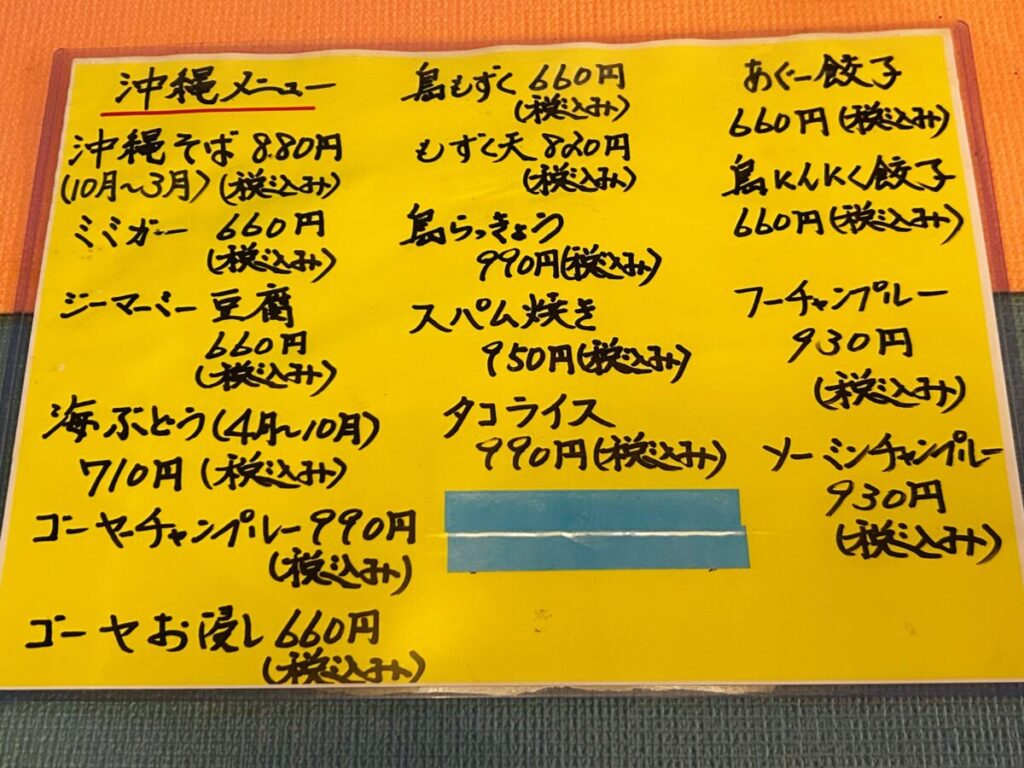 沖縄メニュー
沖縄そば 880円
(10月～3月) (税込み)
ミミガー 660円
(税込み)
ジーマーミー豆腐
660円
(税込み)
海ぶどう(4月～10月)
710円 (税込み)
ゴーヤーチャンプルー 990円
(税込み)
ゴーヤお浸し 660円
(税込み)
島もずく 660円
(税込み)
もずく天 820円
(税込み)
島らっきょう
990円(税込み)
スパム焼き
950円(税込み)
タコライス
990円(税込み)
あぐー餃子
660円(税込み)
島んにく餃子
660円(税込み)
フーチャンプルー
930円
(税込み)
ソーミンチャンプルー
930円
(税込み)